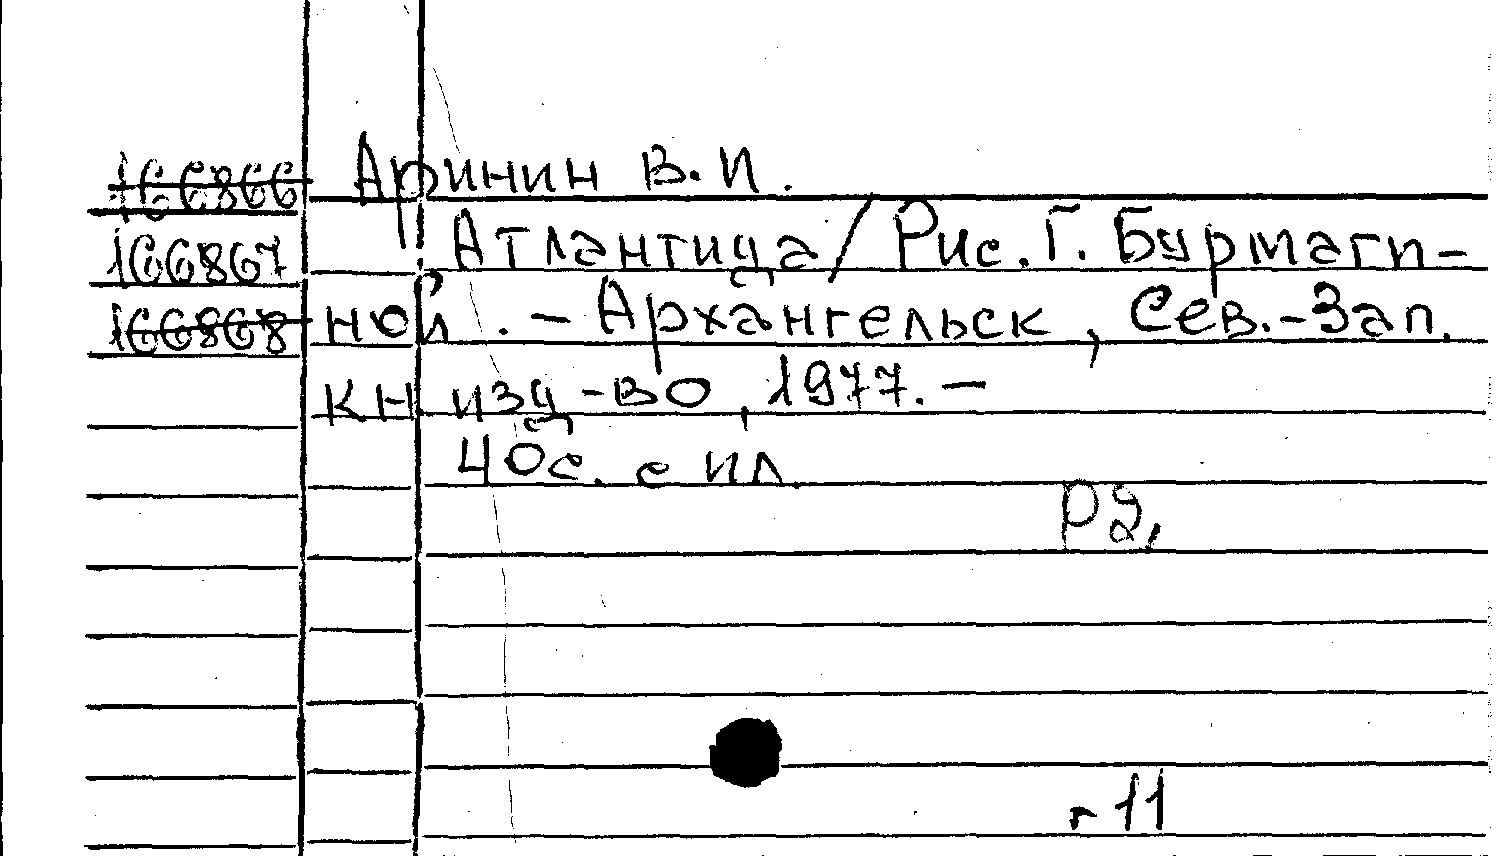 166866 Аринин В.И.
166867 Атлантида / Рис. Г. Бурмаги-
166868 ной. - Архангельск, Сев.-Зап.
кн изд-во, 1977. -
40с. с ил.
Р2,
г 11